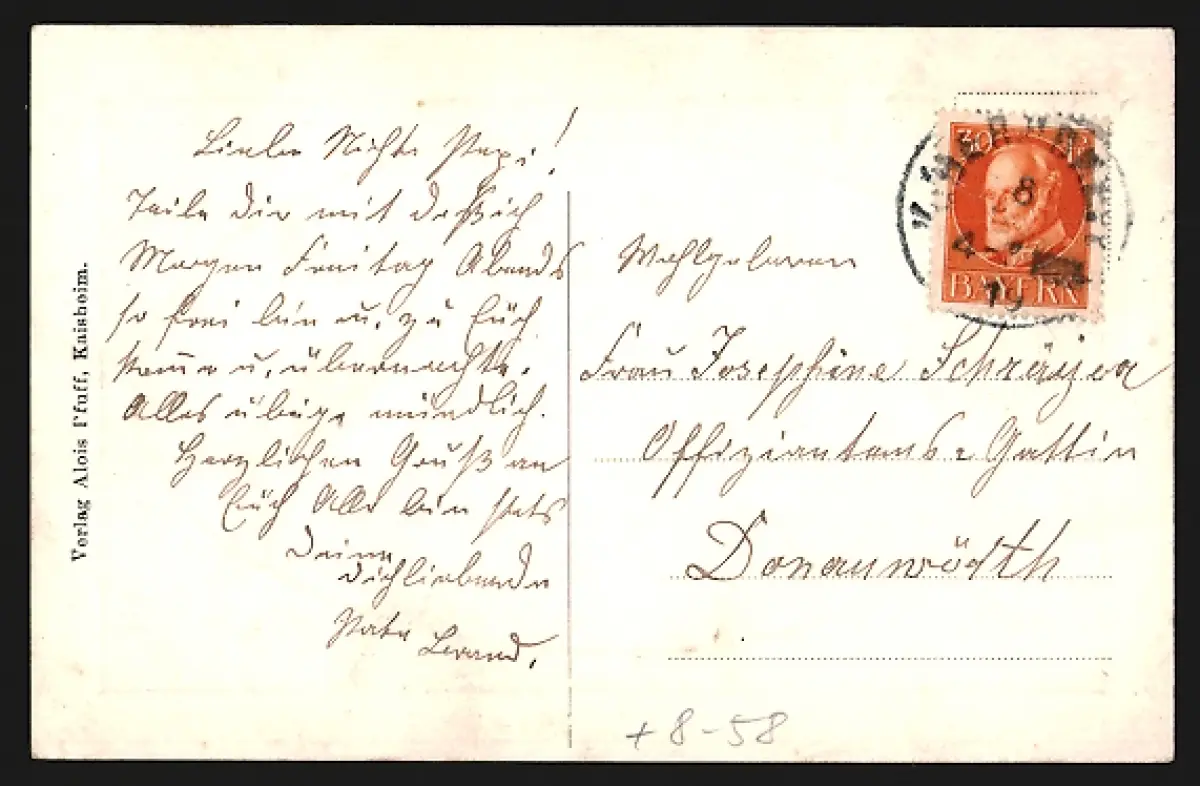 Liebe Nichte Pepi!
Teile Dir mit daß ich
Morgen Freitag Abends
so frei bin u. zu Euch
komme u. übernachte.
Alles übrige mündlich.
Herzlichen Gruß an
Euch Alle bin stets
Deine
Dichliebende
Pate
Verlag Alois Pfaff, Kaisheim.
30
BAYERN
8
4-
19
Wohlgeboren
Frau Josephine Schrayer
Offiziantens-Gattin
Donauwörth
+ 8-58